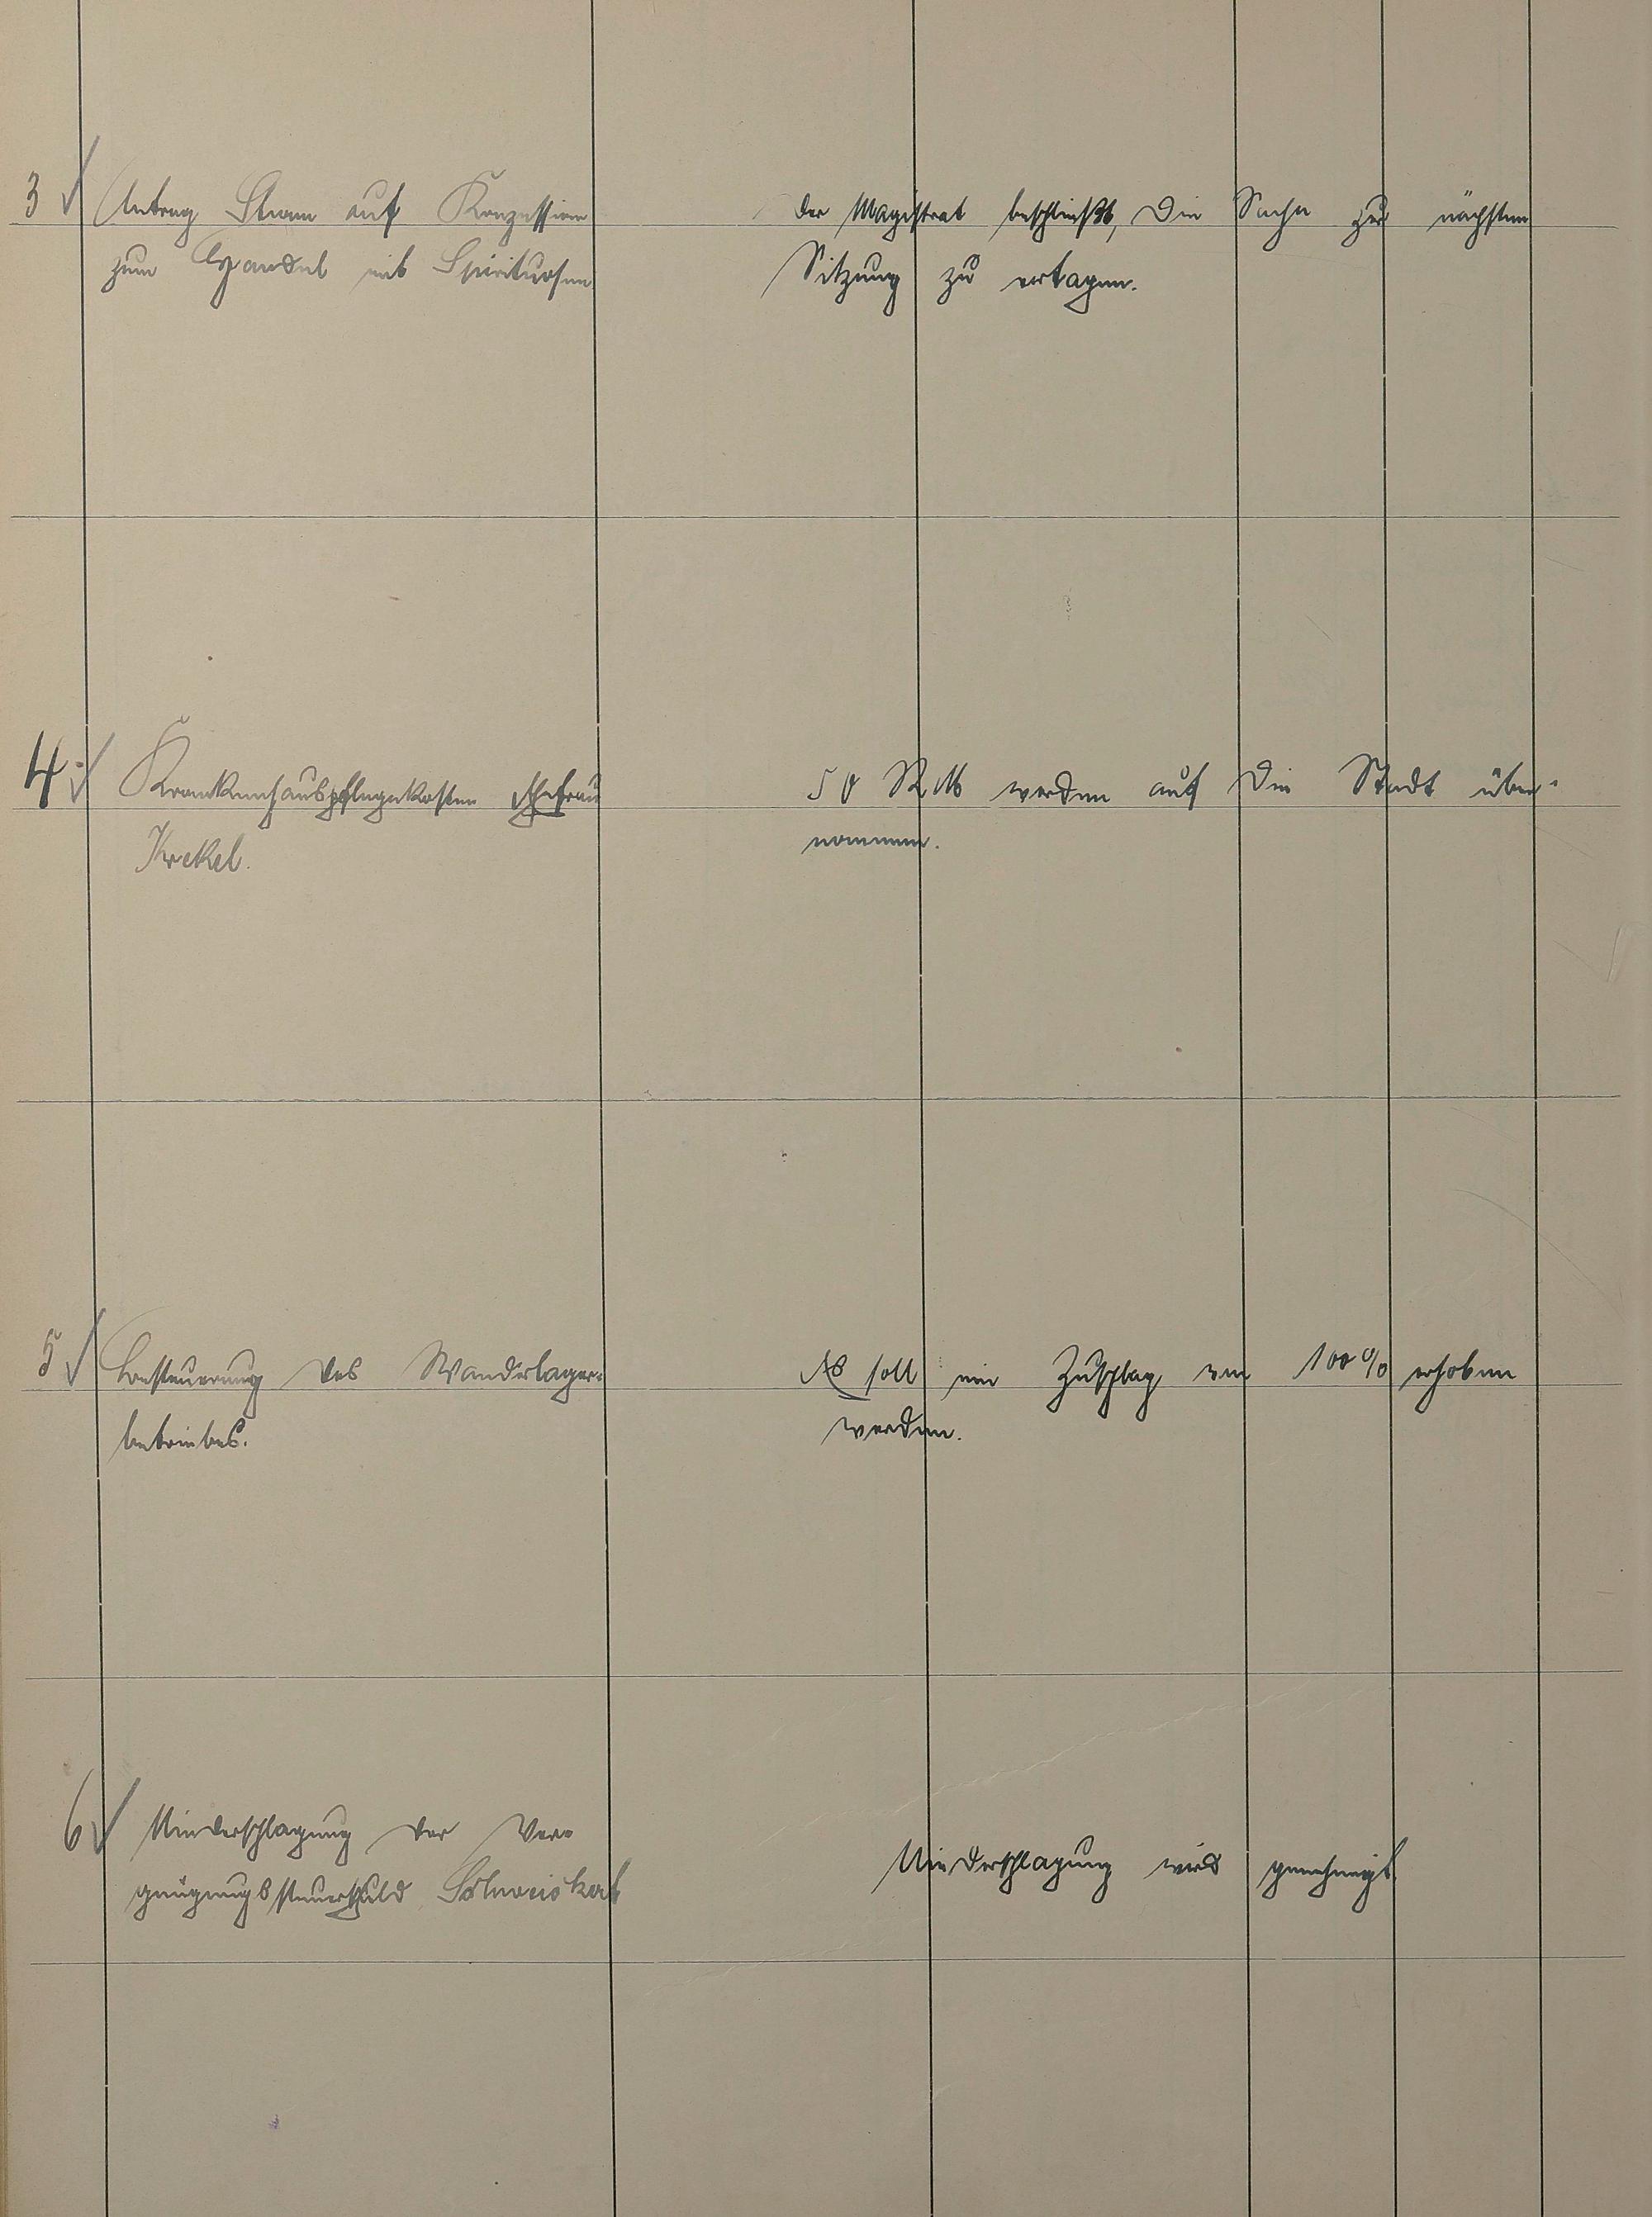 3 Antrag Sturm auf Konzession
zum Handel mit Spirituosen
Der Magistrat beschließt, die Sache zur nächsten
Sitzung zu vertagen.
4. Krankenhauspflegekosten Ehefrau
Krekel.
50 RM werden auf die Stadt über-
nommen.
5 Besteuerung des Wanderlager-
betriebes.
Es soll ein Zuschlag von 100% erhoben
werden.
6 Niederschlagung der Ver-
gnügungssteuerschuld
Niederschlagung wird genehmigt.